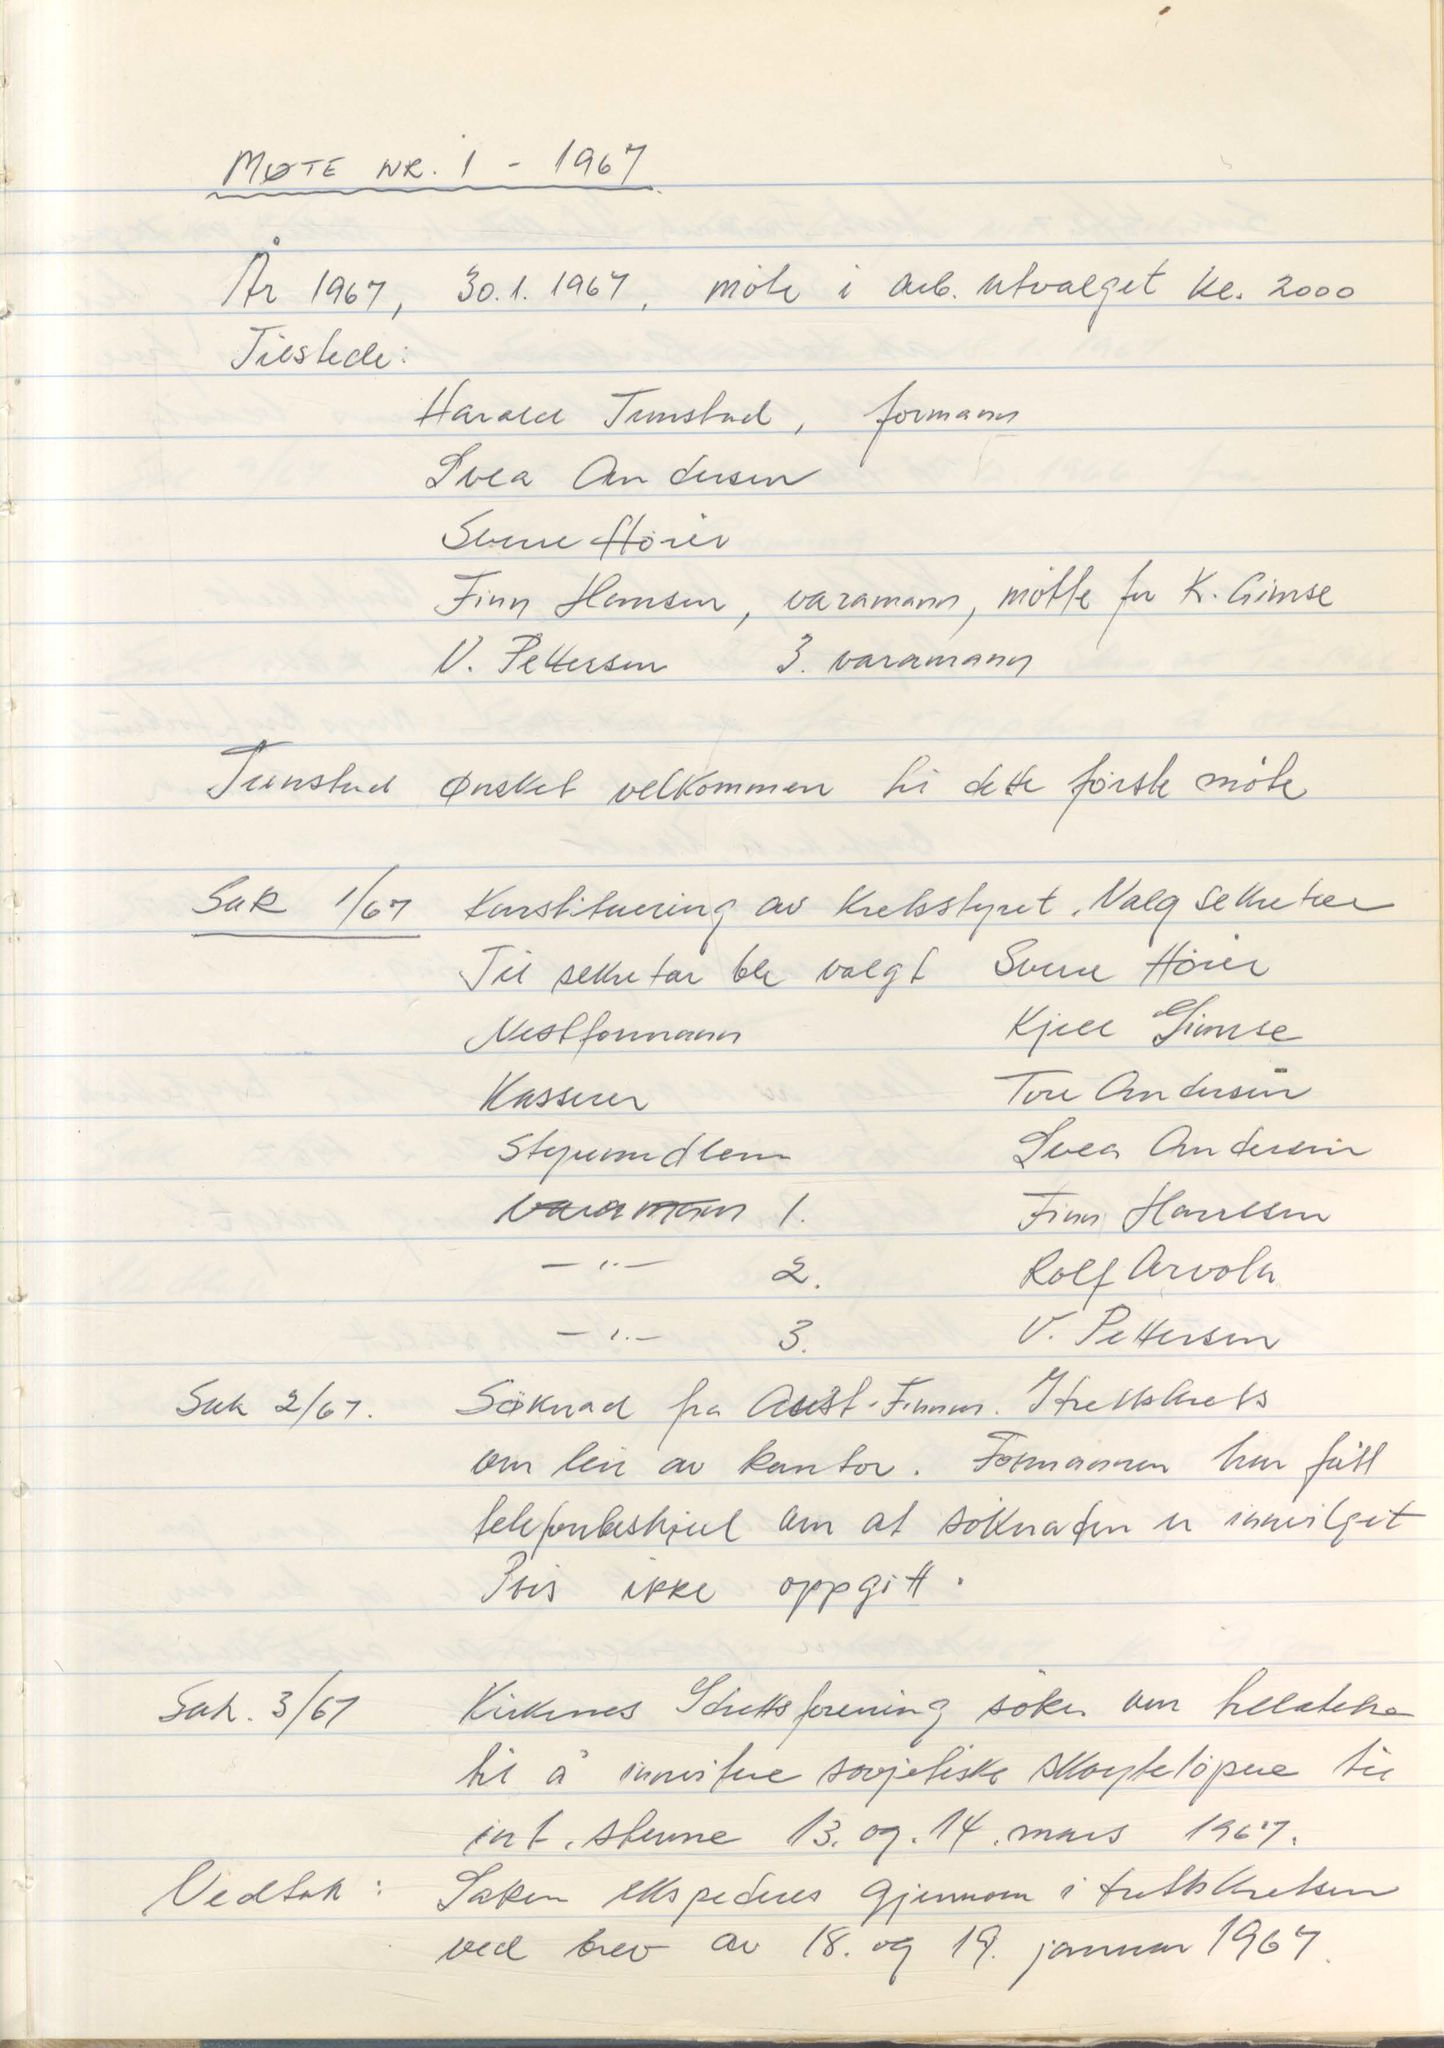 MØTE NR. 1 - 1967
År 1967, 30.1.1967, möte i arb. utvalget kl. 2000
Tilstede:
Harald Tunstad, formann
Svea Andersen
Sverre Hörer
Finn Hansen, varamann, mötte for K. Gimse
V. Pettersen 3. varamann
Tunstad ønsket velkommen til dette første möte
Sak 1/67 Konstituering av Kretsstyret. Valg sekretær
Til sekretær ble valgt Sverre Hörer
Nestformann Kjell Gimse
Kasserer Tore Andersen
Styremedlem Svea Andersen
Varamann 1. Finn Hanssen
— " — 2. Rolf Arvola
— " — 3. V. Pettersen
Sak 2/67. Søknad fra Aust-Finnm. Idrettskrets
om leie av kontor. Formannen har fått
telefonbeskjed om at söknaden er innvilget
Pris ikke oppgitt.
Sak. 3/67 Kirkenes Idrettsforening söker om tillatelse
til å invitere sovjetiske skøytelöpere til
int. stevne 13. og. 14. mars 1967.
Vedtak: Saken ekspederes gjennom idrettskretsen
ved brev av 18. og 19. januar 1967.